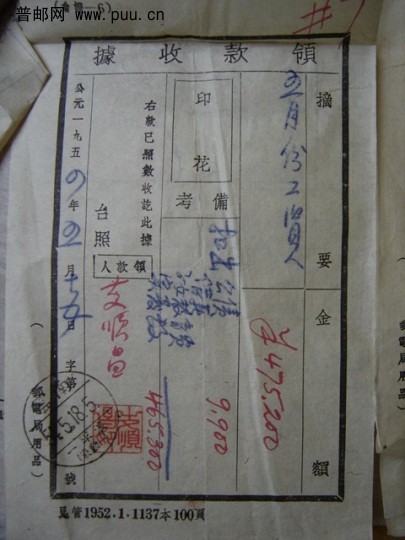 普邮网 www.puu.cn
領款收據
摘要
五月份工資
金額
¥475.200
印花
備考
扣出
9.900
465.300
右款已照數收訖此據
台照
領款人
支順昌
公元一九五四年五月十五日
字第 號
54.5.18.5
(郵電局用品)
(郵電局用品)
息管1952.1.1137本100頁